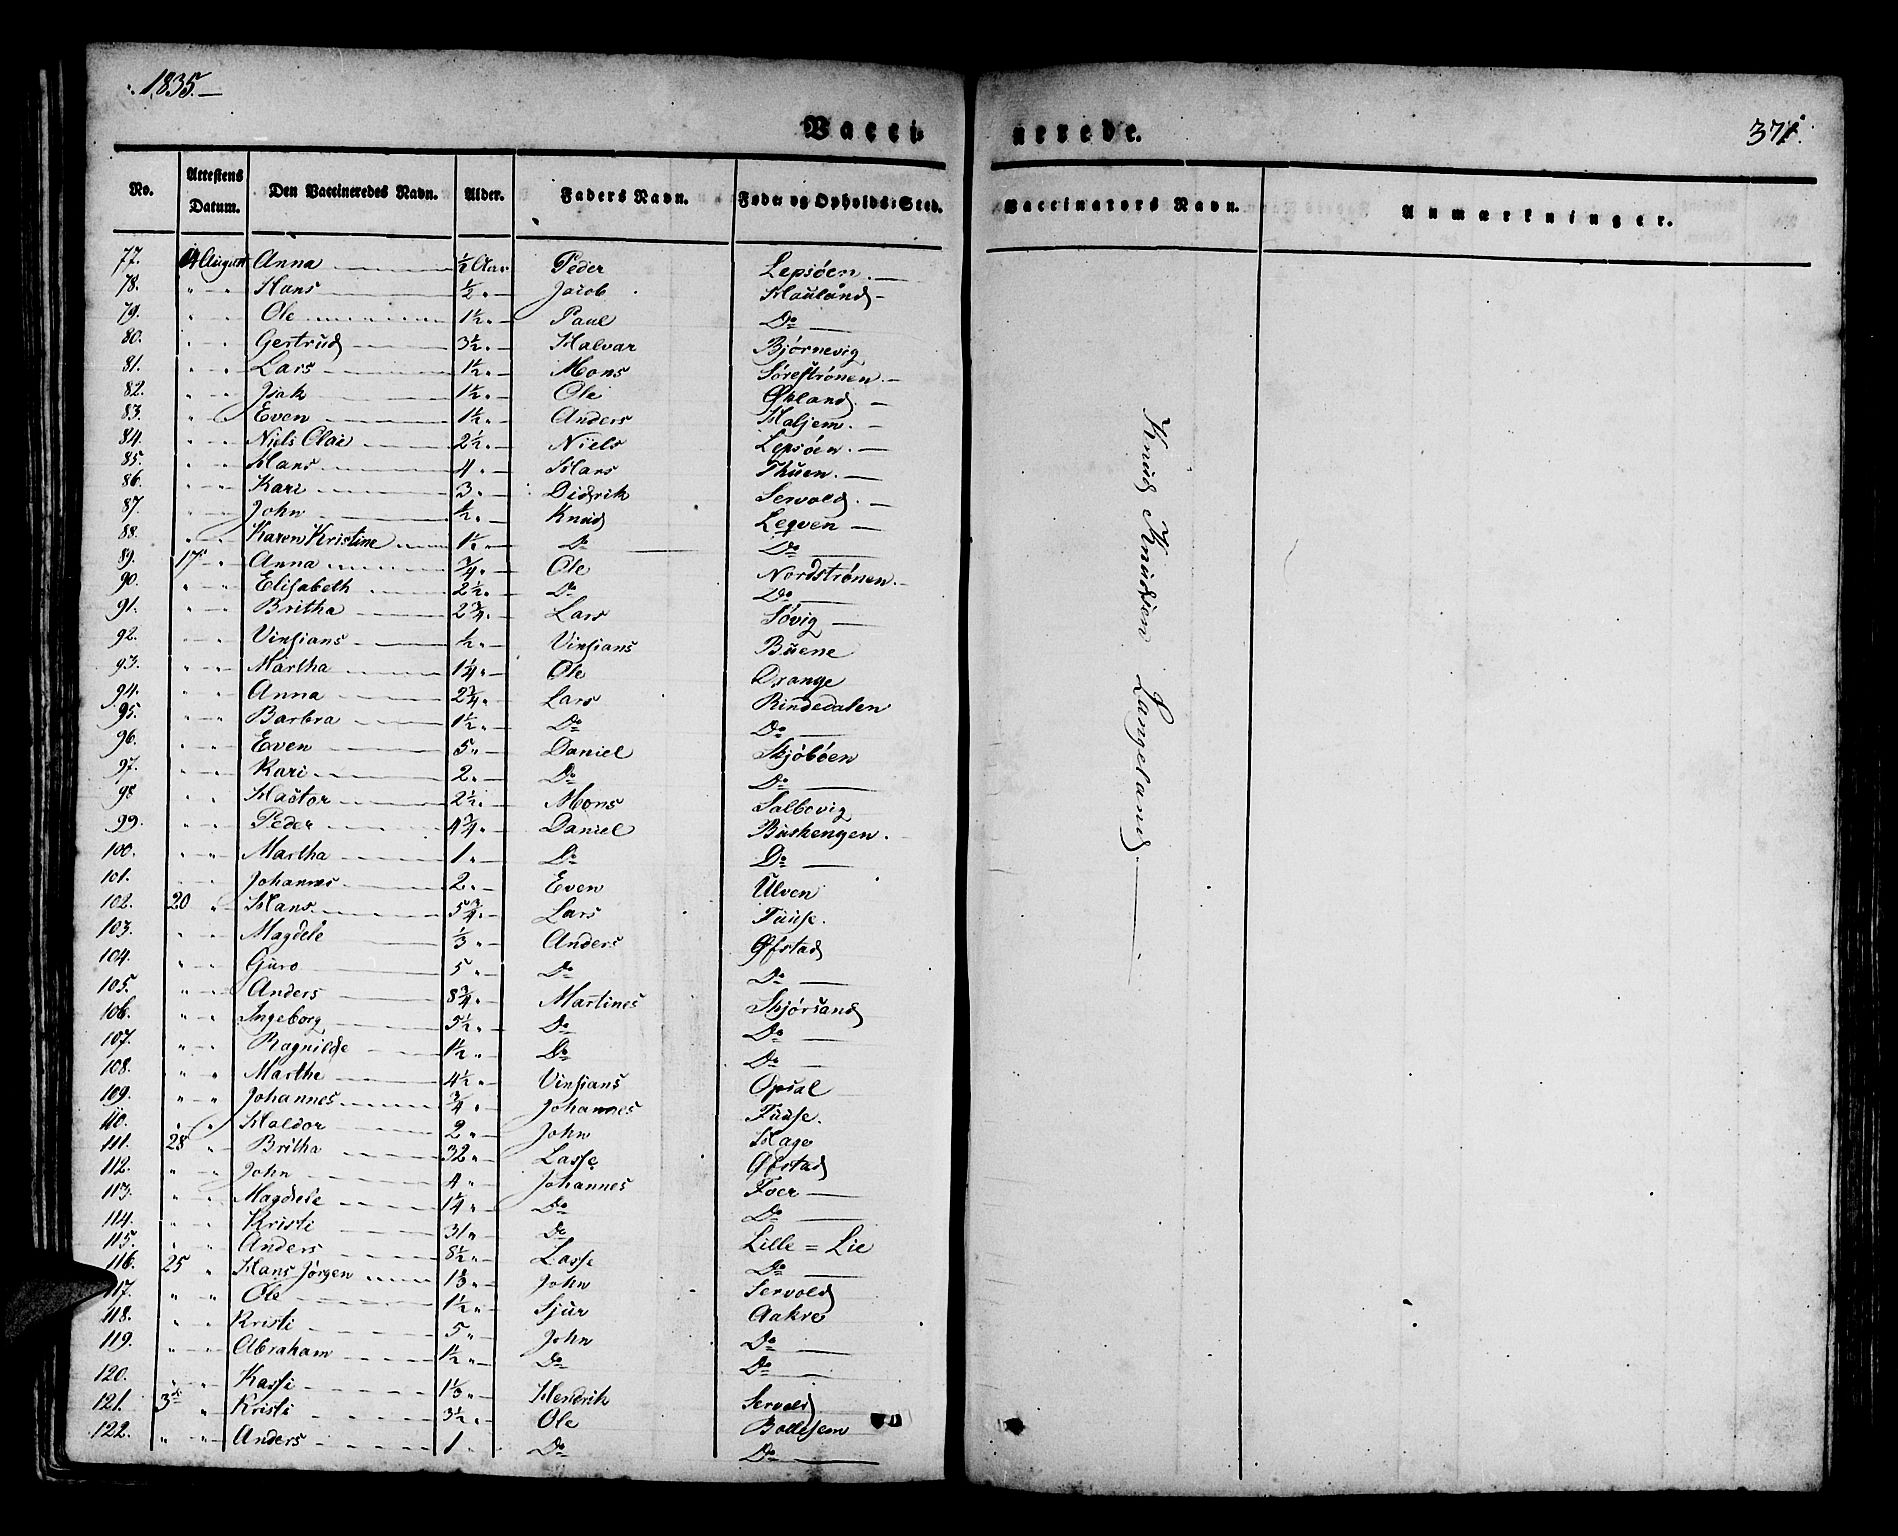 1835.
Vacci nerede.
371.
No. Attestens Datum. Den Vaccineredes Navn. Alder. Faders Navn. Føde- og Opholds-Sted. Vaccinators Navn. Anmærkninger.
77. 14 August Anna ½ Aar Peder Lepsöen
78. " " Hans ½ " Jacob Hauland
79. " " Ole 1½ " Paul Do
80. " " Gertrud 3½ " Halvar Bjørnevig
81. " " Lars 1½ " Mons Søreströnen
82. " " Isak 1½ " Ole Økland
83. " " Even 1½ " Anders Haljem
84. " " Niels Clai 2½ " Niels Lepsöen
85. " " Hans 4 " Hans Thuen
86. " " Kari 3 " Didrik Servold
87. " " John ½ " Knud Legven
88. " " Karen Kristine 1½ " Do Do
89. 17 " Anna ¾ " Ole Nordströnen
90. " " Elisabeth 2½ " Do Do
91. " " Britha 2¾ " Lars Søvig
92. " " Vinsians ½ " Vinsians Buene
93. " " Martha 1¼ " Ole Drange
94. " " Anna 2¾ " Lars Rindedalen
95. " " Barbra 1½ " Do Do
96. " " Even 5 " Daniel Skjöböen
97. " " Kari 2 " Do Do
98 " " Hastor 2½ " Mons Salbovig
99. " " Peder 4¾ " Daniel Buskengen
100. " " Martha 1 " Do Do
101. " " Johannes 2 " Even Ulven
102. 20 " Hans 5¾ " Lars Tuuse
103. " " Magdele ⅓ " Anders Øfstad
104. " " Guro 5 " Do Do
105. " " Anders 8¾ " Martines Skjørsand
106. " " Ingeborg 5½ " Do Do
107. " " Ragnilde 1½ " Do Do
108. " " Marthe 4½ " Vinsians Opsal
109. " " Johannes ¾ " Johannes Tuuse
110. " " Haldor 2 " John Hage
111. 28 " Britha 32 " Lasse Øfstad
112. " " John 4 " Johannes Foer
113. " " Magdele 1¼ " Do Do
114. " " Kristi 31 " Do Lille = Lie
115. " " Anders 8½ " Lasse Do
116. 25 " Hans Jörgen 1⅓ " John Servold
117. " " Ole 1½ " Sjur Aakre
118. " " Kristi 5 " John Do
119. " " Abraham 1½ " Do Do
120. " " Kassi 1⅓ " Hendrik Servold
121. " Kristi 3½ " Ole
122. " " Anders 1 " Do Do
Knud Knudsen Langeland